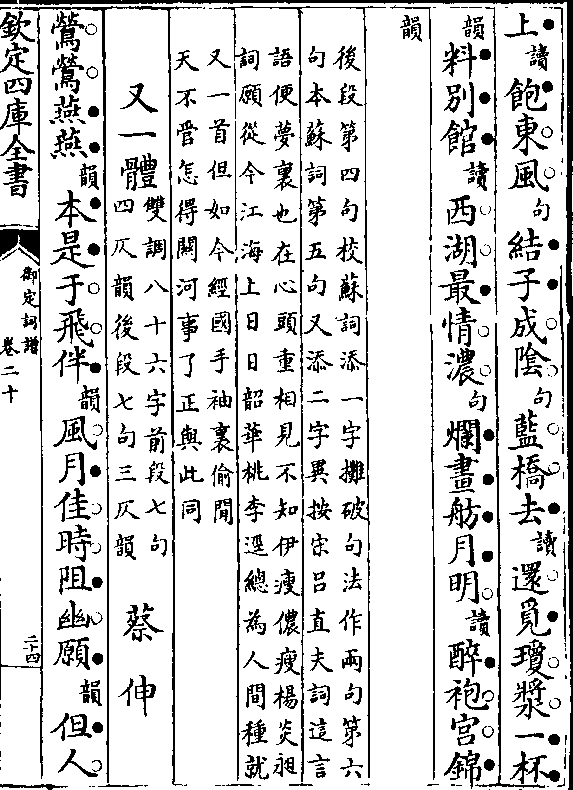 上讀飽東風句結子成陰句藍橋去讀還覓瓊漿一杯
韻料別館讀西湖最情濃句爛畫舫月明讀醉袍宮錦
韻
後段第四句校蘇詞添一字攤破句法作兩句第六
句本蘇詞第五句又添二字異按宋呂直夫詞這言
語便夢裏也在心頭重相見不知伊瘦儂瘦楊炎昶
詞願從今江海上日日韶華桃李逕總為人間種就
又一首但如今經國手袖裏偷閒
天不管怎得關河事了正與此同
又一體雙調八十六字前段七句四仄韻後段七句三仄韻 蔡伸
鶯鶯燕燕韻本是于飛伴韻風月佳時阻幽願韻但人
欽定四庫全書
御定詞譜
卷二十
二十四